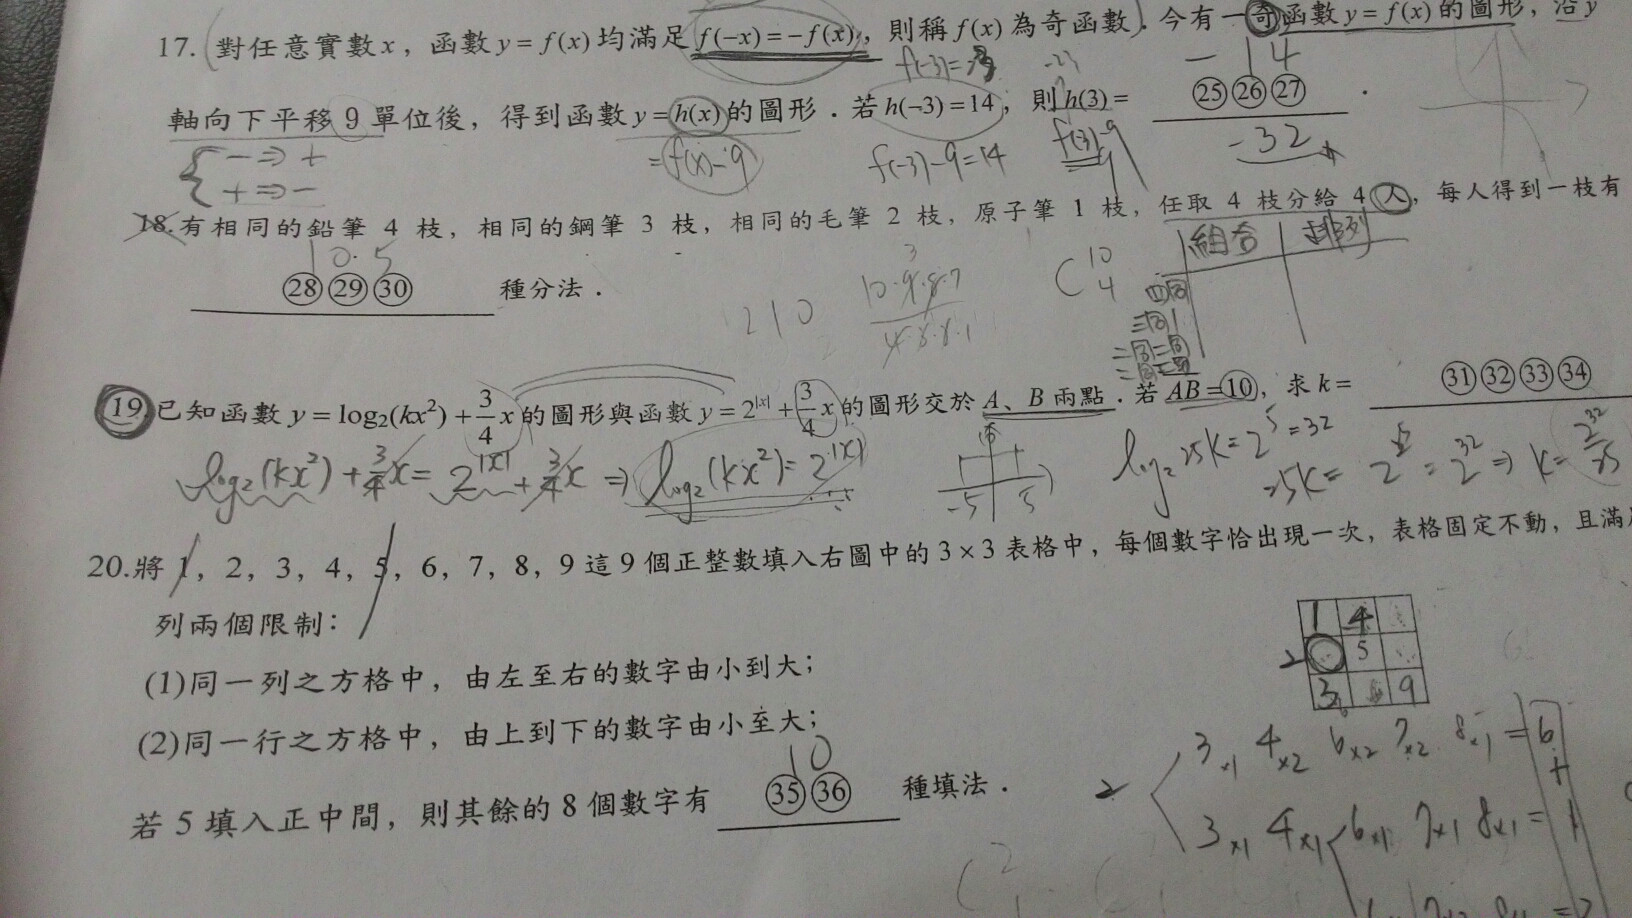 17.(對任意實數x，函數y=f(x)均滿足f(-x)=-f(x)，則稱f(x)為奇函數)．今有一奇函數y=f(x)的圖形，沿y
- 1 4
f(-3)=
-23
軸向下平移 9 單位後，得到函數y=h(x)的圖形．若h(-3)=14，則h(3)= ㉕㉖㉗ ．
-32
{ - ⇒ +
+ ⇒ -
=f(x)-9
f(-3)-9=14
f(3)-9
18.有相同的鉛筆 4 枝，相同的鋼筆 3 枝，相同的毛筆 2 枝，原子筆 1 枝，任取 4 枝分給 4 人，每人得到一枝有
組合 排列
10.5
㉘㉙㉚ 種分法．
210
10·9·8·7
4·3·2·1
C 10 4
四同
三同1
二同二同
19.已知函數 y=log₂(kx²)+3/4 x的圖形與函數 y=2^|x|+3/4 x的圖形交於 A、B 兩點．若 AB=10，求 k= ㉛㉜㉝㉞
log₂(kx²)+3/4x=2^|x|+3/4x ⇒ log₂(kx²)=2^|x|
-5 5
log₂25k=2⁵=32
20.將 1，2，3，4，5，6，7，8，9 這 9 個正整數填入右圖中的 3×3 表格中，每個數字恰出現一次，表格固定不動，且滿
列兩個限制：
1 4
2 5
3 9
(1)同一列之方格中，由左至右的數字由小到大；
(2)同一行之方格中，由上到下的數字由小至大；
10
若 5 填入正中間，則其餘的 8 個數字有 ㉟㊱ 種填法．
2
3×1 4×2 6×2 7×2 8×1 =6
+
3×1 4×1 6×1 7×1 8×1 =